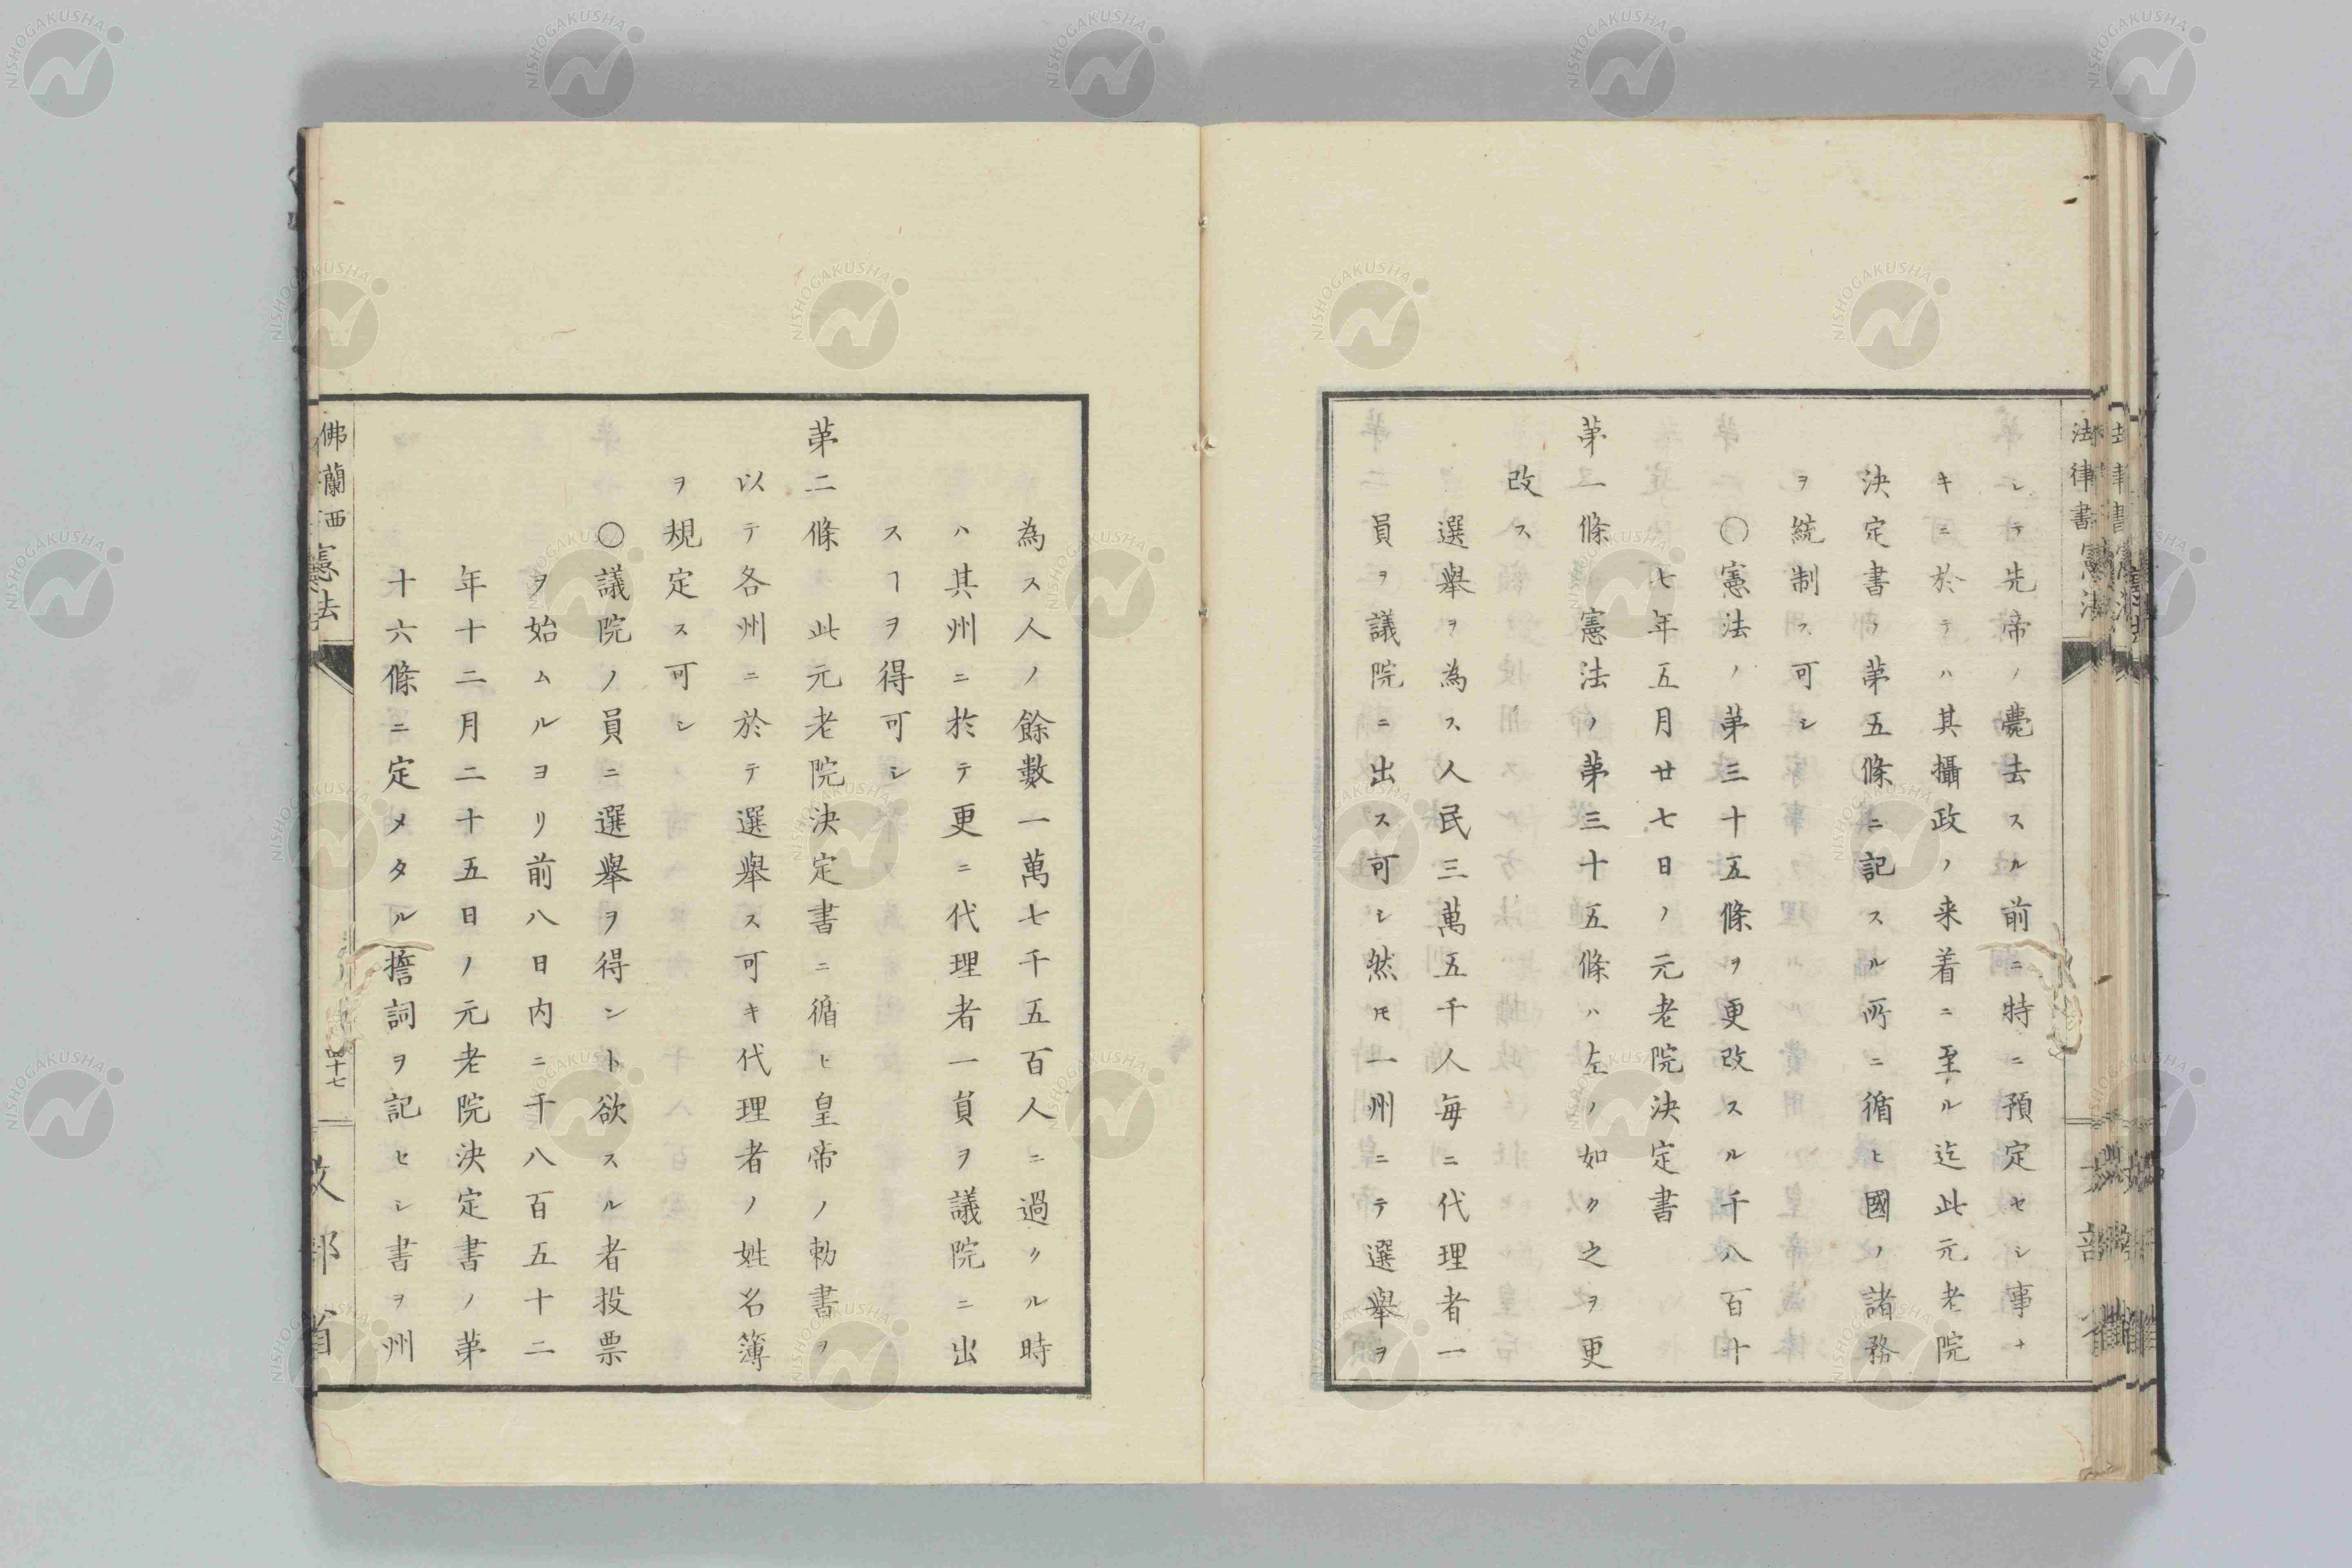 シテ先帝ノ薨去スル前ニ特ニ預定セシ事ナ
キニ於テハ其攝政ノ来着ニ至ル迄此元老院
決定書ノ第五條ニ記スル所ニ循ヒ國ノ諸務
ヲ統制ス可シ
〇憲法ノ第三十五條ヲ更改スル千八百十
七年五月廿七日ノ元老院決定書
第一條 憲法ノ第三十五條ハ左ノ如ク之ヲ更
改ス
選舉ヲ為ス人民三萬五千人毎ニ代理者一
員ヲ議院ニ出ス可シ然𪜈一州ニテ選舉ヲ
為ス人ノ餘數一萬七千五百人ニ過クル時
ハ其州ニ於テ更ニ代理者一員ヲ議院ニ出
スヿヲ得可シ
第二條 此元老院決定書ニ循ヒ皇帝ノ勅書ヲ
以テ各州ニ於テ選舉ス可キ代理者ノ姓名簿
ヲ規定ス可シ
〇議院ノ員ニ選舉ヲ得ント欲スル者投票
ヲ始ムルヨリ前八日内ニ千八百五十二
年十二月二十五日ノ元老院決定書ノ第
十六條ニ定メタル擔詞ヲ記セシ書ヲ州
佛蘭西憲法
十七
文部省
法律書憲法
NISHOGAKUSHA